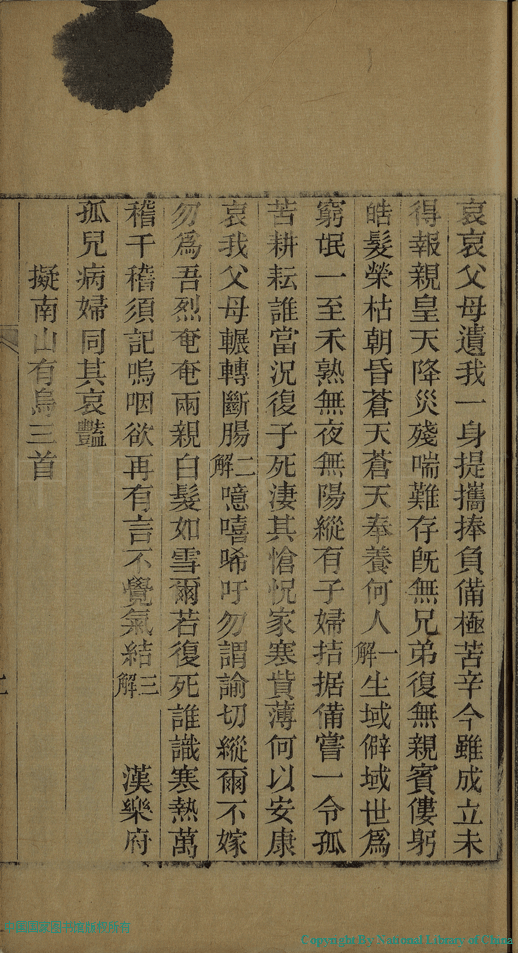 哀哀父母遺我一身提攜捧負備極苦辛今雖成立未
得報親皇天降災殘喘難存旣無兄弟復無親賓僂躬
皓髮榮枯朝昏蒼天蒼天奉養何人一解生域僻域世爲
窮氓一至禾熟無夜無陽縱有子婦拮据備嘗一令孤
苦耕耘誰當況復子死淒其愴怳家寒貲薄何以安康
哀我父母輾轉斷腸二解噫嘻唏吁勿謂諭切縱爾不嫁
勿爲吾烈奄奄兩親白髮如雪爾若復死誰識寒熱萬
稽千稽須記嗚咽欲再有言不覺氣結三解 漢樂府
孤兒病婦同其哀豔
擬南山有鳥三首
Copyright By National Library of China